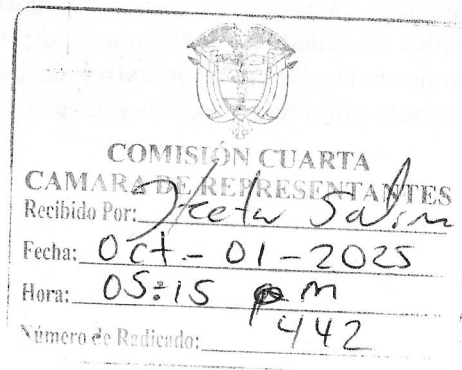 COMISIÓN CUARTA
CAMARA DE REPRESENTANTES
Recibido Por:
Fecha: Oct - 01 - 2025
Hora: 05:15 pm
Número de Radicado: 442